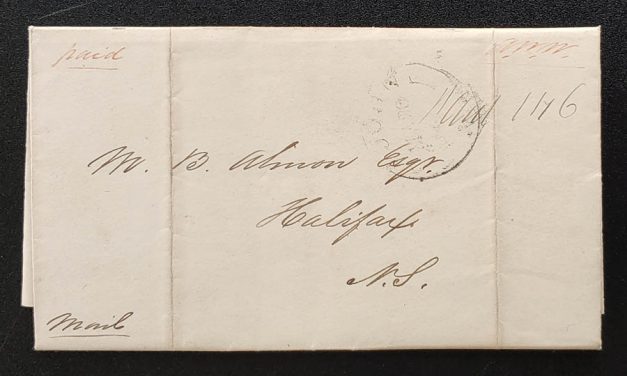 paid
Paid 1/16
M. B. Almon Esqr.
Halifax
N.S.
Mail